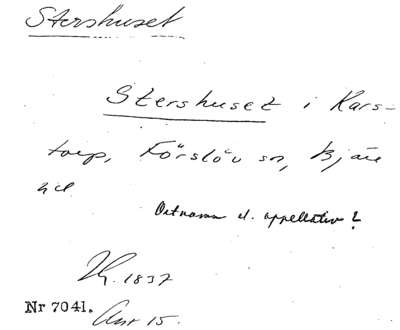 Stershuset
Stershuset i Kars-
torp, Förslöv sn, Bjäre
hd
Ortnamn el. appellativ?
1837
Nr 7041.
15.